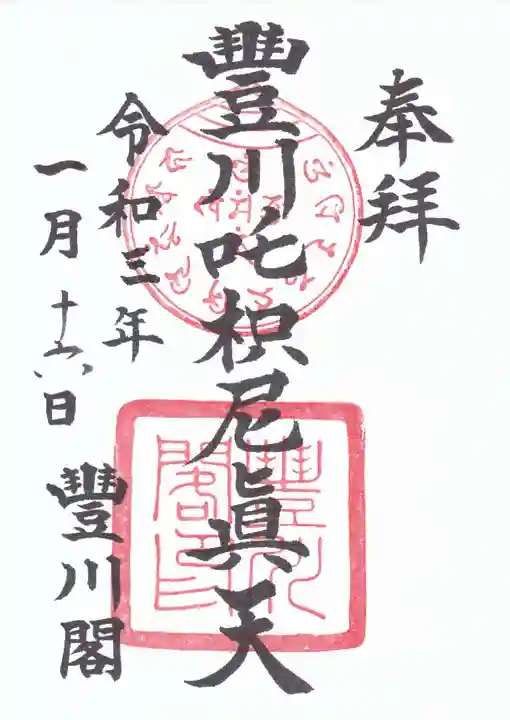 奉拜
豐川吒枳尼眞天
令和三年
一月十六日
豐川閣
豐川閣印